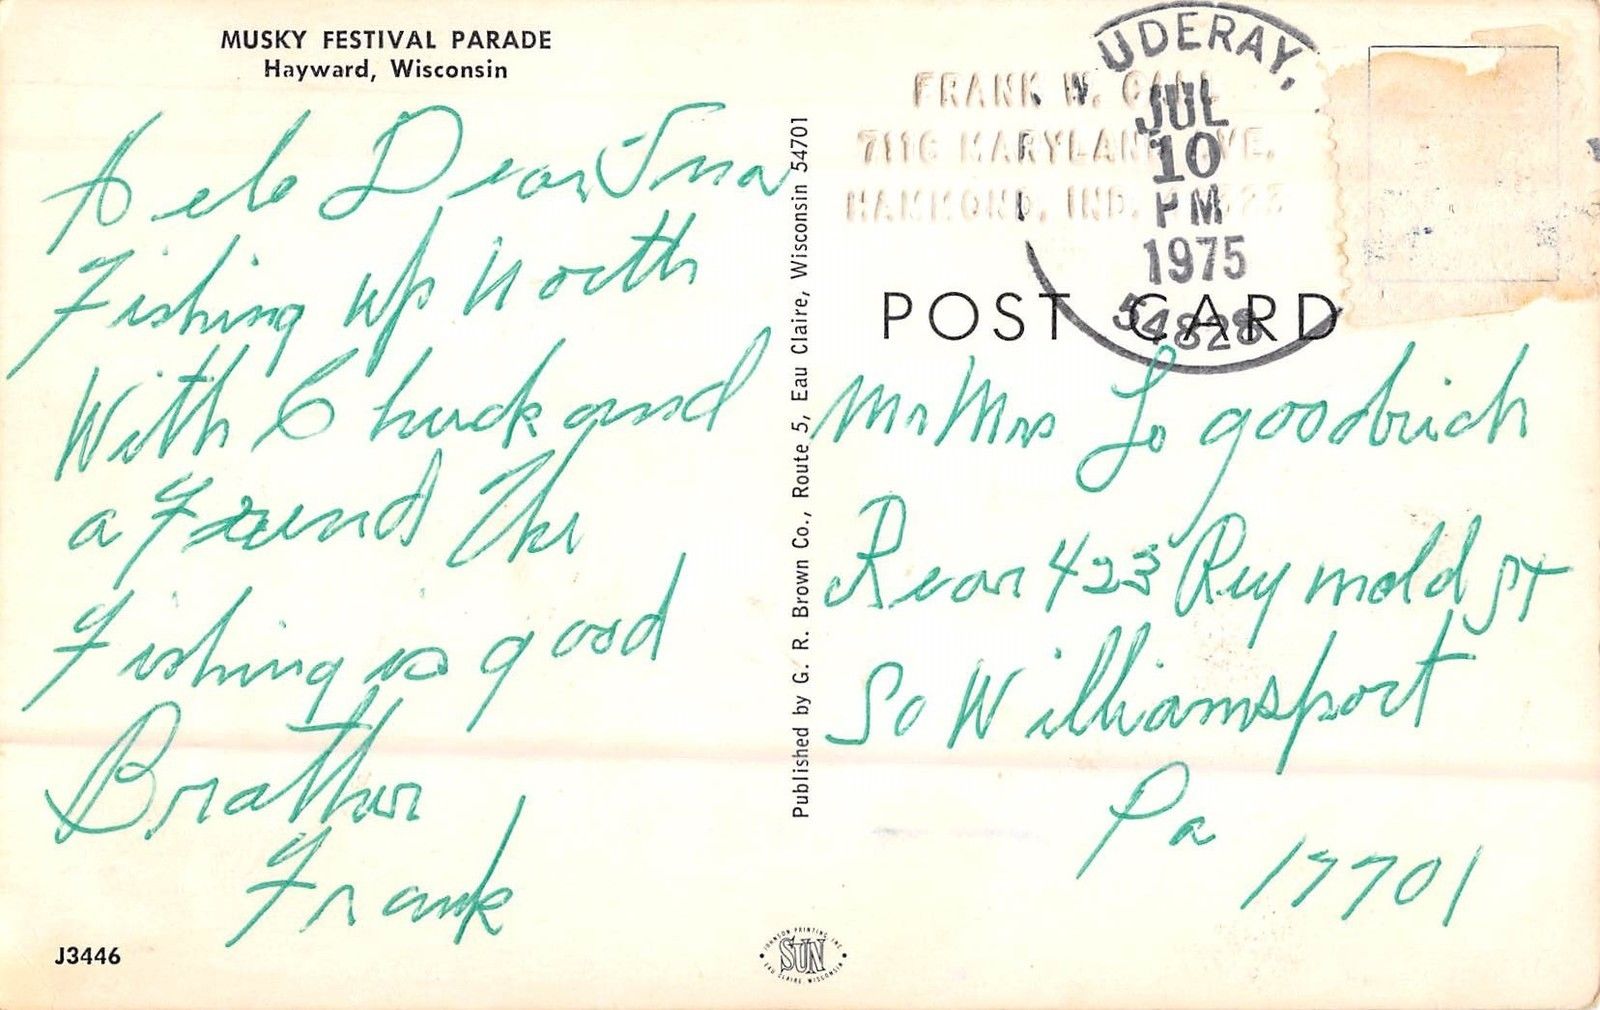 MUSKY FESTIVAL PARADE
Hayward, Wisconsin
Helo Dear Ina
Fishing up North
With Chuck and
a Freind The
Fishing is good
Brother
Frank
J3446
Published by G. R. Brown Co., Route 5, Eau Claire, Wisconsin 54701
JOHNSON PRINTING INC.
SUN
EAU CLAIRE WISCONSIN
FRANK W.
7116 MARYLAND AVE.
HAMMOND, IND.
UDERAY,
JUL
10
PM
1975
54828
POST CARD
Mr Mrs Lo goodrich
Rear 423 Reymold St
So Williamsport
Pa
17701